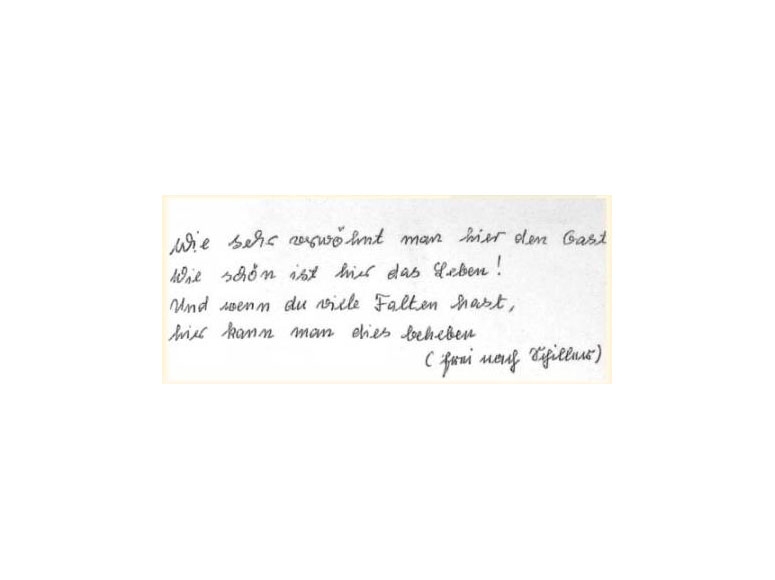 Wie sehr verwöhnt man hier den Gast
Wie schön ist hier das Leben!
Und wenn du viele Falten hast,
hier kann man dies beheben
(frei nach Schiller)